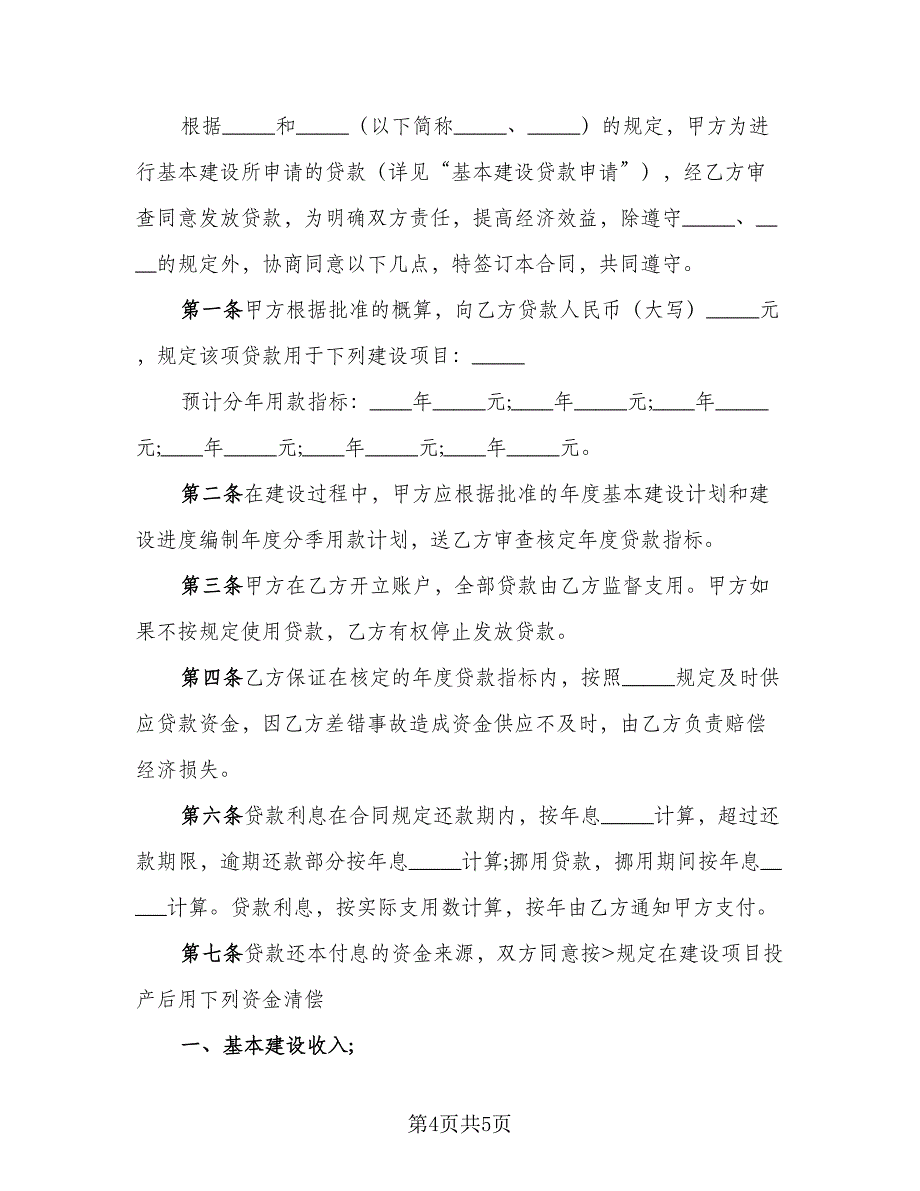 根据_____和_____（以下简称_____、_____）的规定，甲方为进
行基本建设所申请的贷款（详见“基本建设贷款申请”），经乙方审
查同意发放贷款，为明确双方责任，提高经济效益，除遵守_____、__
__的规定外，协商同意以下几点，特签订本合同，共同遵守。
第一条甲方根据批准的概算，向乙方贷款人民币（大写）_____元
，规定该项贷款用于下列建设项目：_____
预计分年用款指标：____年_____元;____年_____元;____年_____
元;____年_____元;____年_____元;____年_____元。
第二条在建设过程中，甲方应根据批准的年度基本建设计划和建
设进度编制年度分季用款计划，送乙方审查核定年度贷款指标。
第三条甲方在乙方开立账户，全部贷款由乙方监督支用。甲方如
果不按规定使用贷款，乙方有权停止发放贷款。
第四条乙方保证在核定的年度贷款指标内，按照_____规定及时供
应贷款资金，因乙方差错事故造成资金供应不及时，由乙方负责赔偿
经济损失。
第六条贷款利息在合同规定还款期内，按年息_____计算，超过还
款期限，逾期还款部分按年息_____计算;挪用贷款，挪用期间按年息__
___计算。贷款利息，按实际支用数计算，按年由乙方通知甲方支付。
第七条贷款还本付息的资金来源，双方同意按>规定在建设项目投
产后用下列资金清偿
一、基本建设收入;
第4页共5页